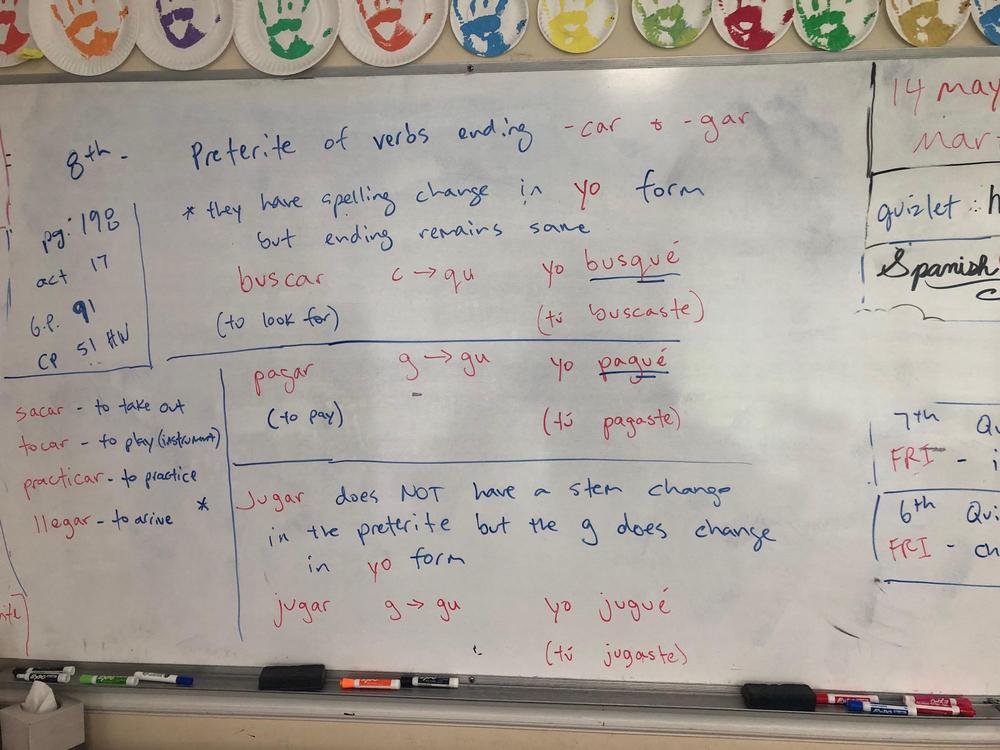 8th -
pg: 198
act 17
G.P. 91
CP 51 HW
Preterite of verbs ending -car & -gar
* they have spelling change in yo form
but ending remains same
buscar c → qu yo busqué
(to look for) (tú buscaste)
pagar g → gu yo pagué
(to pay) (tú pagaste)
sacar - to take out
tocar - to play (instrument)
practicar - to practice
llegar - to arive *
Jugar does NOT have a stem change
in the preterite but the g does change
in yo form
jugar g → gu yo jugué
(tú jugaste)
14 may
Mar
quizlet : h
Spanish
7th Qu
FRI - i
6th Qui
FRI - ch